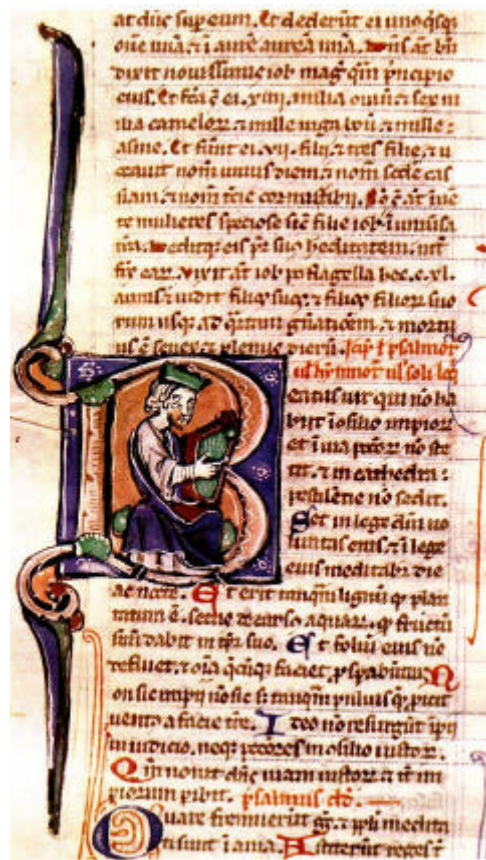 at dñs sup eum. Et dederũt ei unoqsq;
ouẽ unã ⁊ ĩ aurẽ aureã unã. Dñs at bñ
dixit nouissimis iob mag̃ qm̃ p̃ncipio
eius. Et fc̃a ẽ ei .xiiij. milia ouiũ ⁊ sex m
ilia camelor̃ ⁊ mille iuga boũ ⁊ mille
asine. Et fũnt ei .vii. filij ⁊ tres filie ⁊ u
ocauit nom̃ unius diem ⁊ nom̃ sc̃de cas
siam ⁊ nom̃ t̃cie cornustibij. Nõ ẽ at ĩue
te mulieres speciose sic̃ filie iob ĩ uniũsa
t̃ra. Deditq; eis pr̃ suo heditatem. int̃
fr̃s ear̃. Vixit at iob p̃ flagella hec .c.xl.
annis ⁊ uidit filios suos ⁊ filios filior̃ suo
rum usq; ad q̃rtam gñatiõem ⁊ mortu
us ẽ senex ⁊ plenus dierũ. Incip̃ l̃ psalmor̃
ul̃ hỹmnor̃ ul̃ soliloq̃
B eatus uir qui nõ ha
bijt ĩ ↄsilio impior̃
et ĩ uia pccor̃ nõ ste
tit. ⁊ in cathedra
pestilẽtie nõ sedit.
Set in lege dñi uo
luntas eius. ⁊ ĩ lege
eius meditabr̃ die
ac nocte. Et erit tanqm̃ lignũ q̃ plan
tatum ẽ. secus decursus aquar̃. q̃ fructũ
suũ dabit in tp̃r suo. Et foliũ eius nõ
defluet. ⁊ oĩa q̃cũq; faciet p̃spabũtur. N
on sic impij nõ sic s; tanqm̃ puluis q̃ p̃icit
uento a facie t̃re. Ideo nõ resurgũt ĩpij
in iudicio. neq; pccores in ↄsilio iustor̃.
Qm̃ nouit dñs uiam iustor̃ ⁊ it̃ im
piorum pibit. psalmus dd.
Quare fremuerũt gẽ. ⁊ ppl̃i medita
ti sunt ĩania. Astiterũt reges t̃